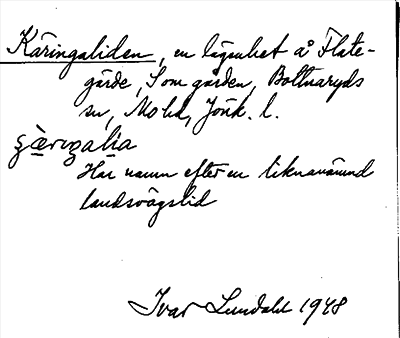 Käringaliden, en lägenhet å Flate-
gärde, Som gården, Bottnaryds
sn, Mo hd, Jönk. l.
Har namn efter en liknämnd
landsvägslid
Ivar Lundahl 1948